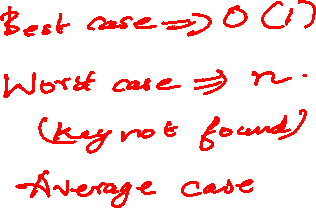 Best case ⇒ O(1)
Worst case ⇒ n.
(key not found)
Average case